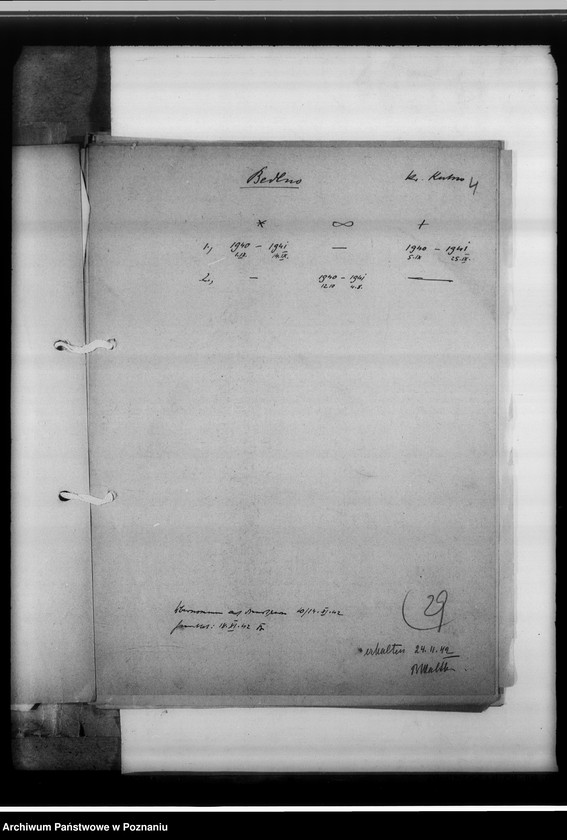 Bedlno Kr. Kutno 4
* ∞ +
1, 1940 – 1941 — 1940 – 1941
14.IX. 5.IX 25.IX.
2, – 1940 – 1941 —
12.IV 4.X.
10/14.XI.42
18.XI.42
29
erhalten 24.11.42
Archiwum Państwowe w Poznaniu